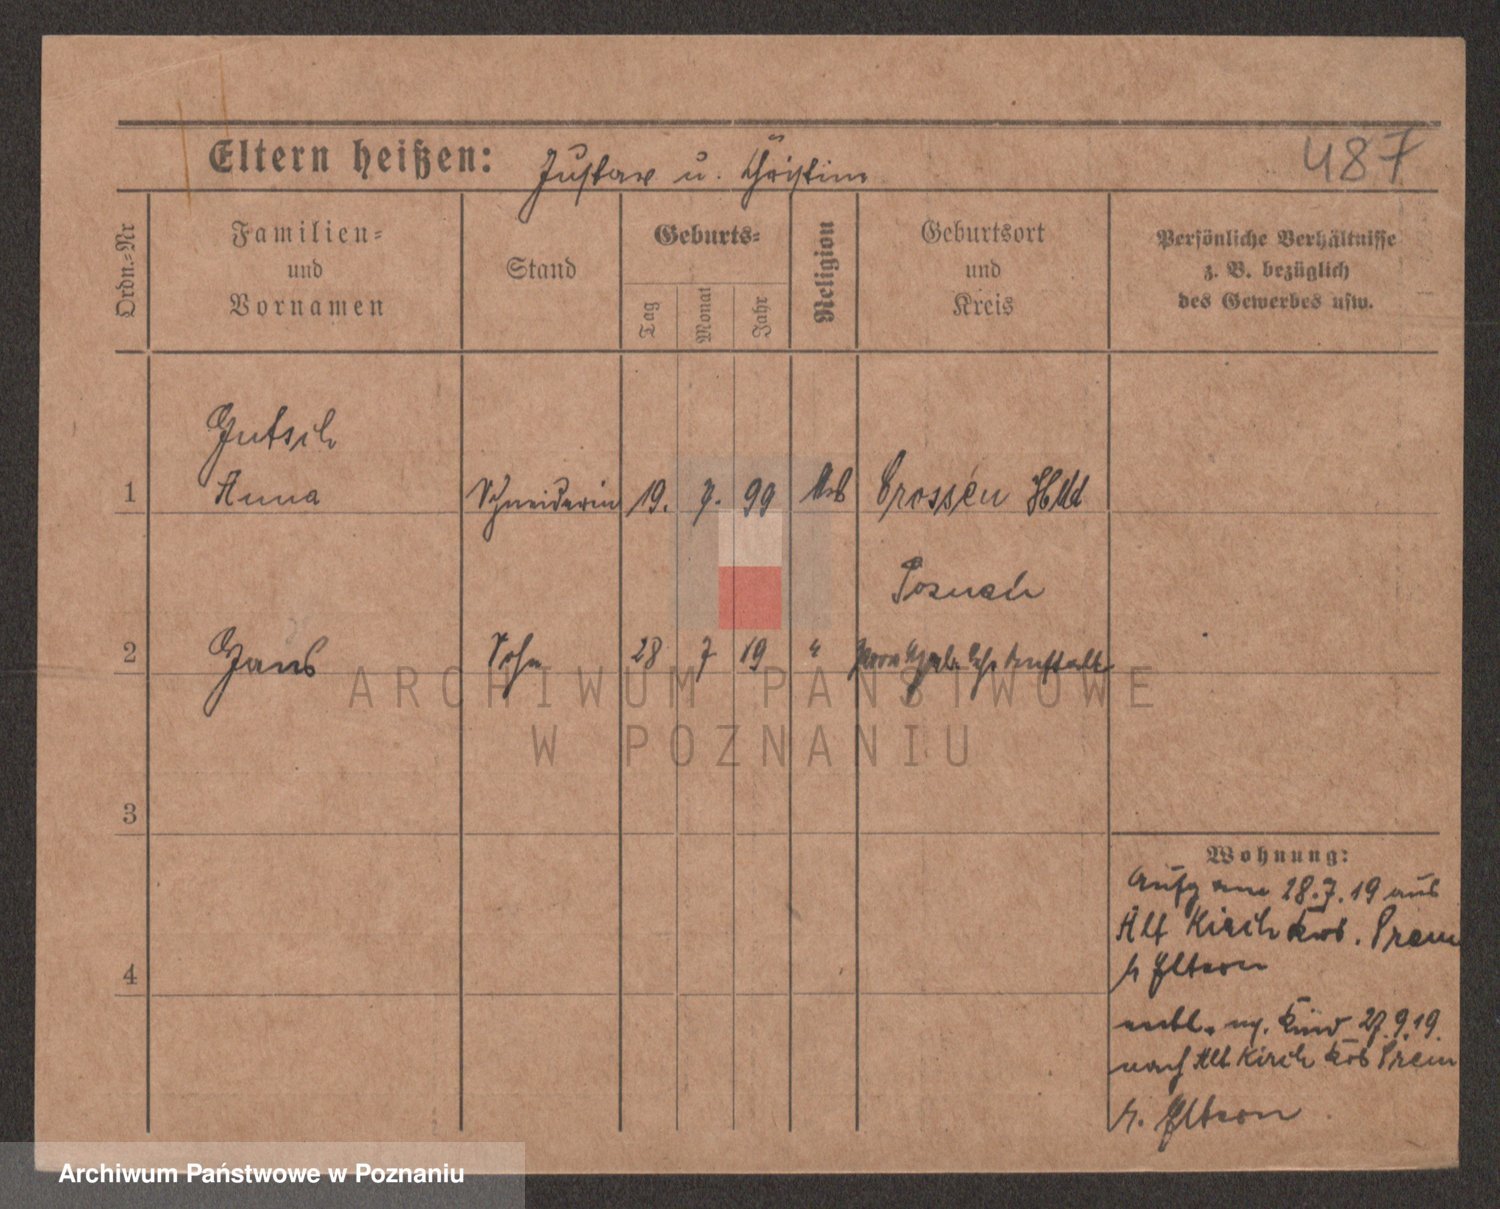 487
Eltern heißen: Gustav u. Christine
Ordn.=Nr
Familien=
und
Vornamen
Stand
Geburts=
Tag
Monat
Jahr
Religion
Geburtsort
und
Kreis
Persönliche Verhältnisse
z. B. bezüglich
des Gewerbes usw.
Gutsch
1 Anna Schneiderin 19. 7. 99 Crossen
2 Hans Sohn 28 7 19 "
3
4
Wohnung:
am 28.7.19 aus
Alt Kirch
Eltern
Kind 27.9.19.
nach Alt Kirch
z. Eltern
ARCHIWUM PAŃSTWOWE
W POZNANIU
Archiwum Państwowe w Poznaniu